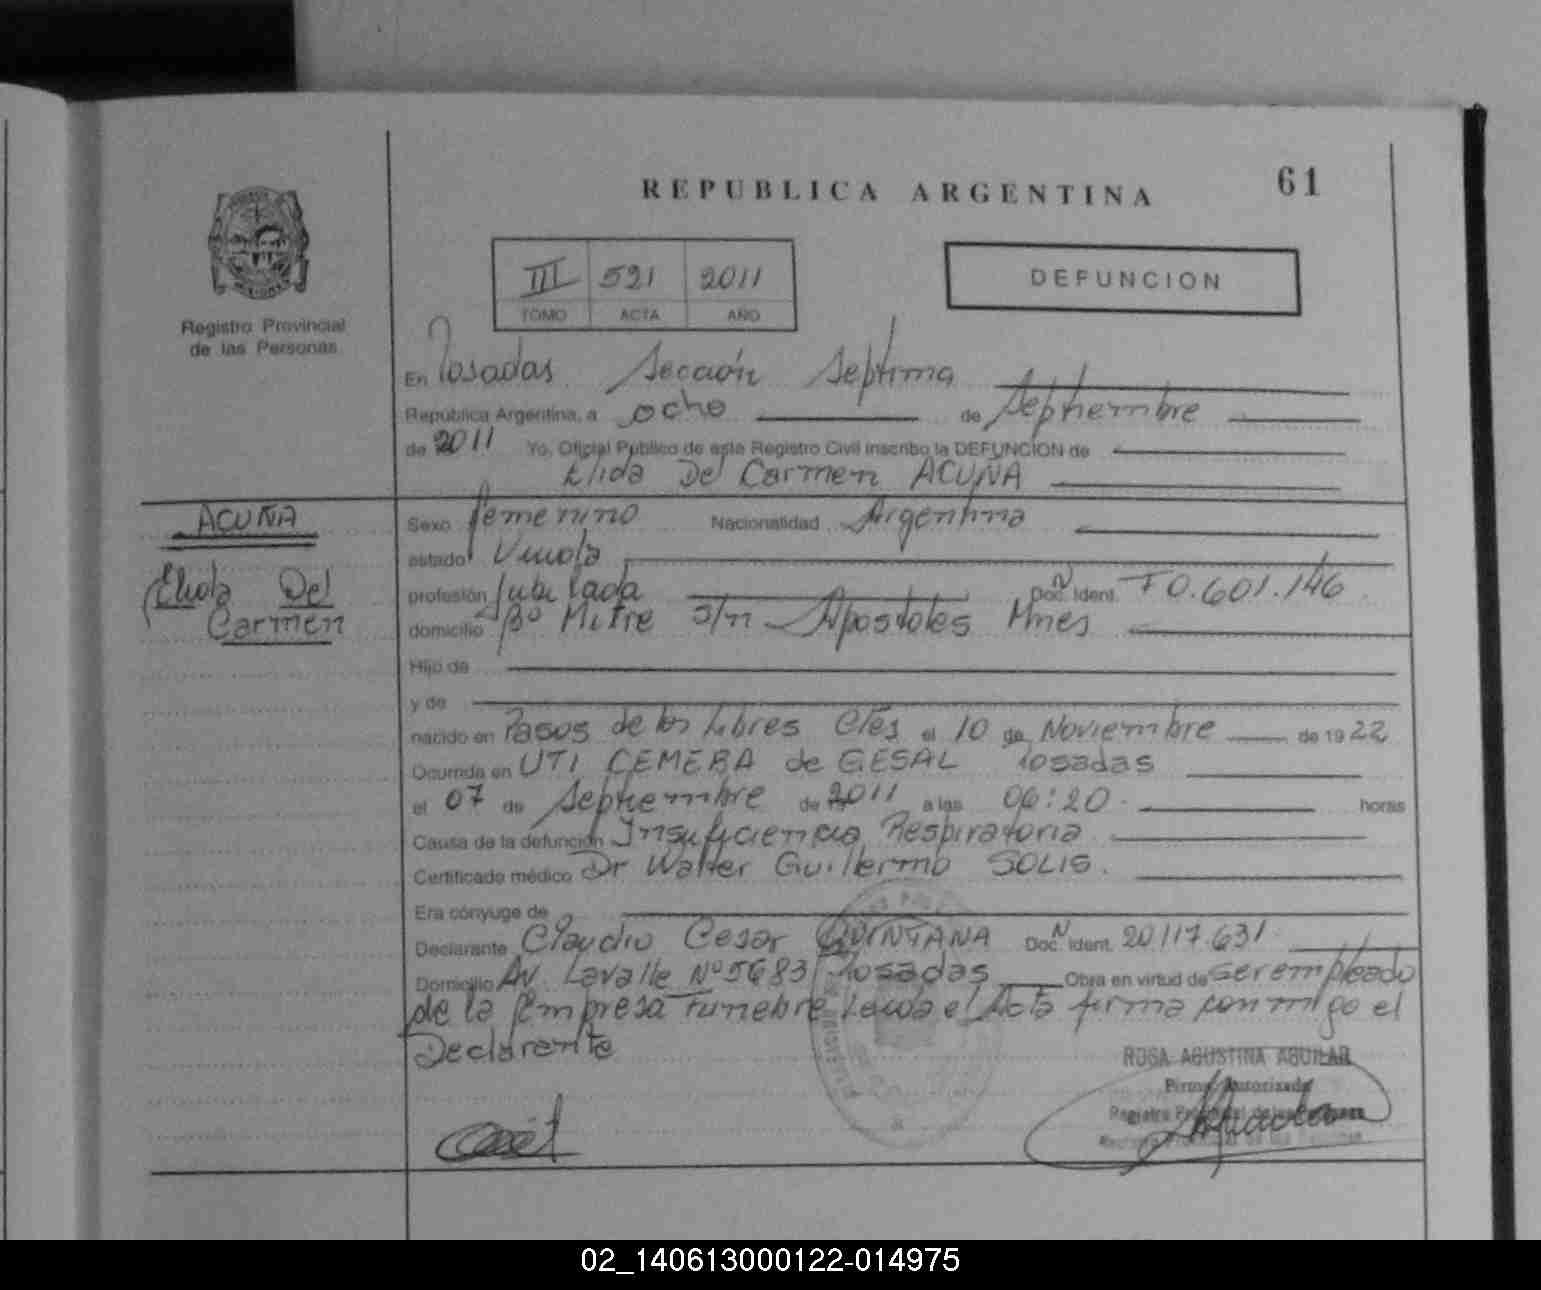 REPUBLICA ARGENTINA 61
III 521 2011
TOMO ACTA AÑO
DEFUNCION
Registro Provincial
de las Personas
En Posadas Sección Septima
República Argentina, a ocho de Septiembre
de 2011 Yo, Oficial Público de este Registro Civil inscribo la DEFUNCION de
Elida Del Carmen ACUÑA
ACUÑA
Elida Del
Carmen
Sexo femenino Nacionalidad Argentina
estado Viuda
profesión Jubilada Doc. Ident. F0.601.146
domicilio Bº Mitre S/n Apostoles Mnes
Hijo de
y de
nacido en Pasos de los Libres Ctes el 10 de Noviembre de 1922
Ocurrida en UTI CEMERA de GESAL Posadas
el 07 de Septiembre de 2011 a las 06:20 horas
Causa de la defunción Insuficiencia Respiratoria
Certificado médico Dr Walter Guillermo SOLIS.
Era cónyuge de
Declarante Claudio Cesar QUINTANA Doc. Ident. 20117.631
Domicilio Av. Lavalle Nº 5683 Posadas Obra en virtud de ser empleado
de la Empresa Funebre Leida el Acta firma conmigo el
Declarante
ROSA AGUSTINA AGUILAR
Firma Autorizada
Registro Provincial de las Personas
02_140613000122-014975